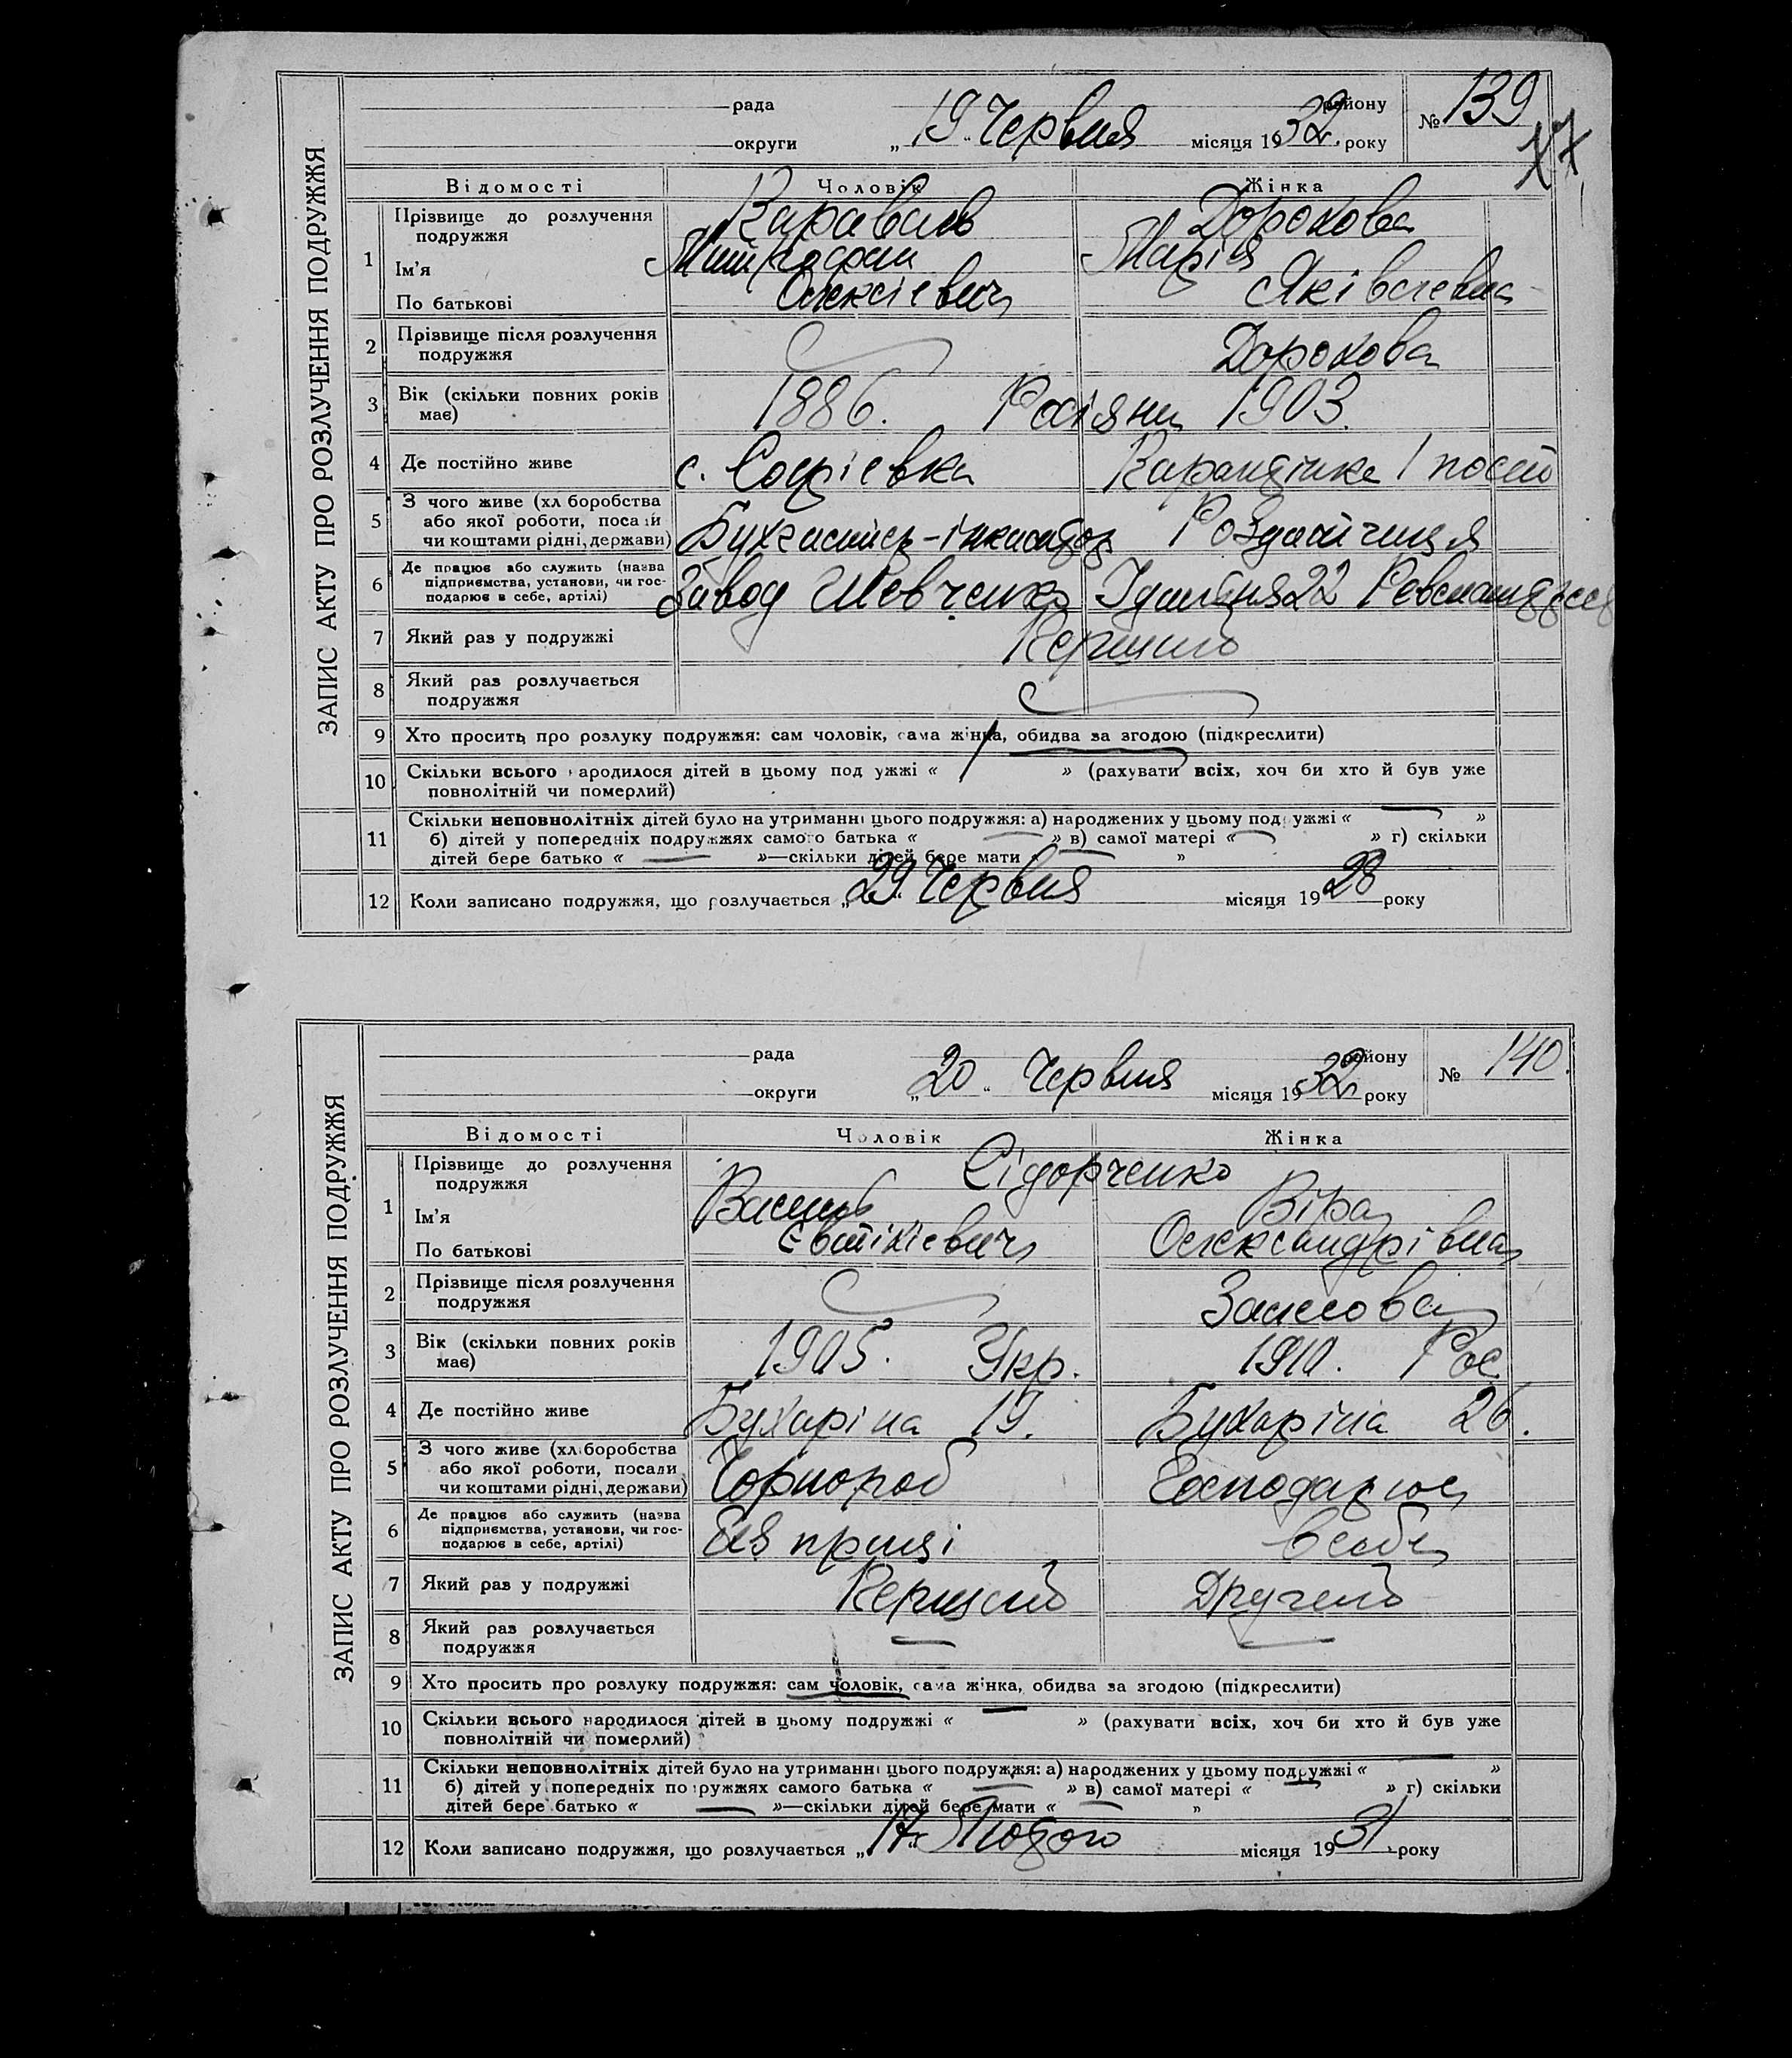 ЗАПИС АКТУ ПРО РОЗЛУЧЕННЯ ПОДРУЖЖЯ
рада району № 139
округи „19“ Червня місяця 1932 року
77
Відомості Чоловік Жінка
1 Прізвище до розлучення подружжя Караваєв Дорохова
Ім'я Митрофан Марія
По батькові Олексієвич Яківлевна
2 Прізвище після розлучення
подружжя Дорохова
3 Вік (скільки повних років
має) 1886. Росіяни 1903.
4 Де постійно живе с. Софієвка Карантінна 1
5 З чого живе (хліборобства
або якої роботи, посади
чи коштами рідні, держави) Бухгалтер-інкасатор Роздатчиця
6 Де працює або служить (назва
підприємства, установи, чи гос-
подарює в себе, артілі) Завод Шевченко Їдальня 22
7 Який раз у подружжі Перший
8 Який раз розлучається
подружжя
9 Хто просить про розлуку подружжя: сам чоловік, сама жінка, обидва за згодою (підкреслити)
10 Скільки всього народилося дітей в цьому подружжі « » (рахувати всіх, хоч би хто й був уже
повнолітній чи померлий)
11 Скільки неповнолітніх дітей було на утриманні цього подружжя: а) народжених у цьому подружжі « — »
б) дітей у попередніх подружжях самого батька « — » в) самої матері « — » г) скільки
дітей бере батько « — »—скільки дітей бере мати « — »
12 Коли записано подружжя, що розлучається „29“ Червня місяця 1928 року
ЗАПИС АКТУ ПРО РОЗЛУЧЕННЯ ПОДРУЖЖЯ
рада району № 140.
округи „20“ Червня місяця 1932 року
Відомості Чоловік Жінка
1 Прізвище до розлучення
подружжя Сідорченко
Ім'я Василь Віра
По батькові Євтіхієвич Олександрівна
2 Прізвище після розлучення
подружжя
3 Вік (скільки повних років
має) 1905. Укр. 1910. Рос
4 Де постійно живе Бухаріна 19. Бухаріна 26.
5 З чого живе (хліборобства
або якої роботи, посади
чи коштами рідні, держави) Чорнороб Господарює
6 Де працює або служить (назва
підприємства, установи, чи гос-
подарює в себе, артілі) Без праці в себе
7 Який раз у подружжі Перший Другий
8 Який раз розлучається
подружжя — —
9 Хто просить про розлуку подружжя: сам чоловік, сама жінка, обидва за згодою (підкреслити)
10 Скільки всього народилося дітей в цьому подружжі « — » (рахувати всіх, хоч би хто й був уже
повнолітній чи померлий)
11 Скільки неповнолітніх дітей було на утриманні цього подружжя: а) народжених у цьому подружжі « — »
б) дітей у попередніх подружжях самого батька « — » в) самої матері « — » г) скільки
дітей бере батько « — »—скільки дітей бере мати « — »
12 Коли записано подружжя, що розлучається „17“ Лютого місяця 1931 року